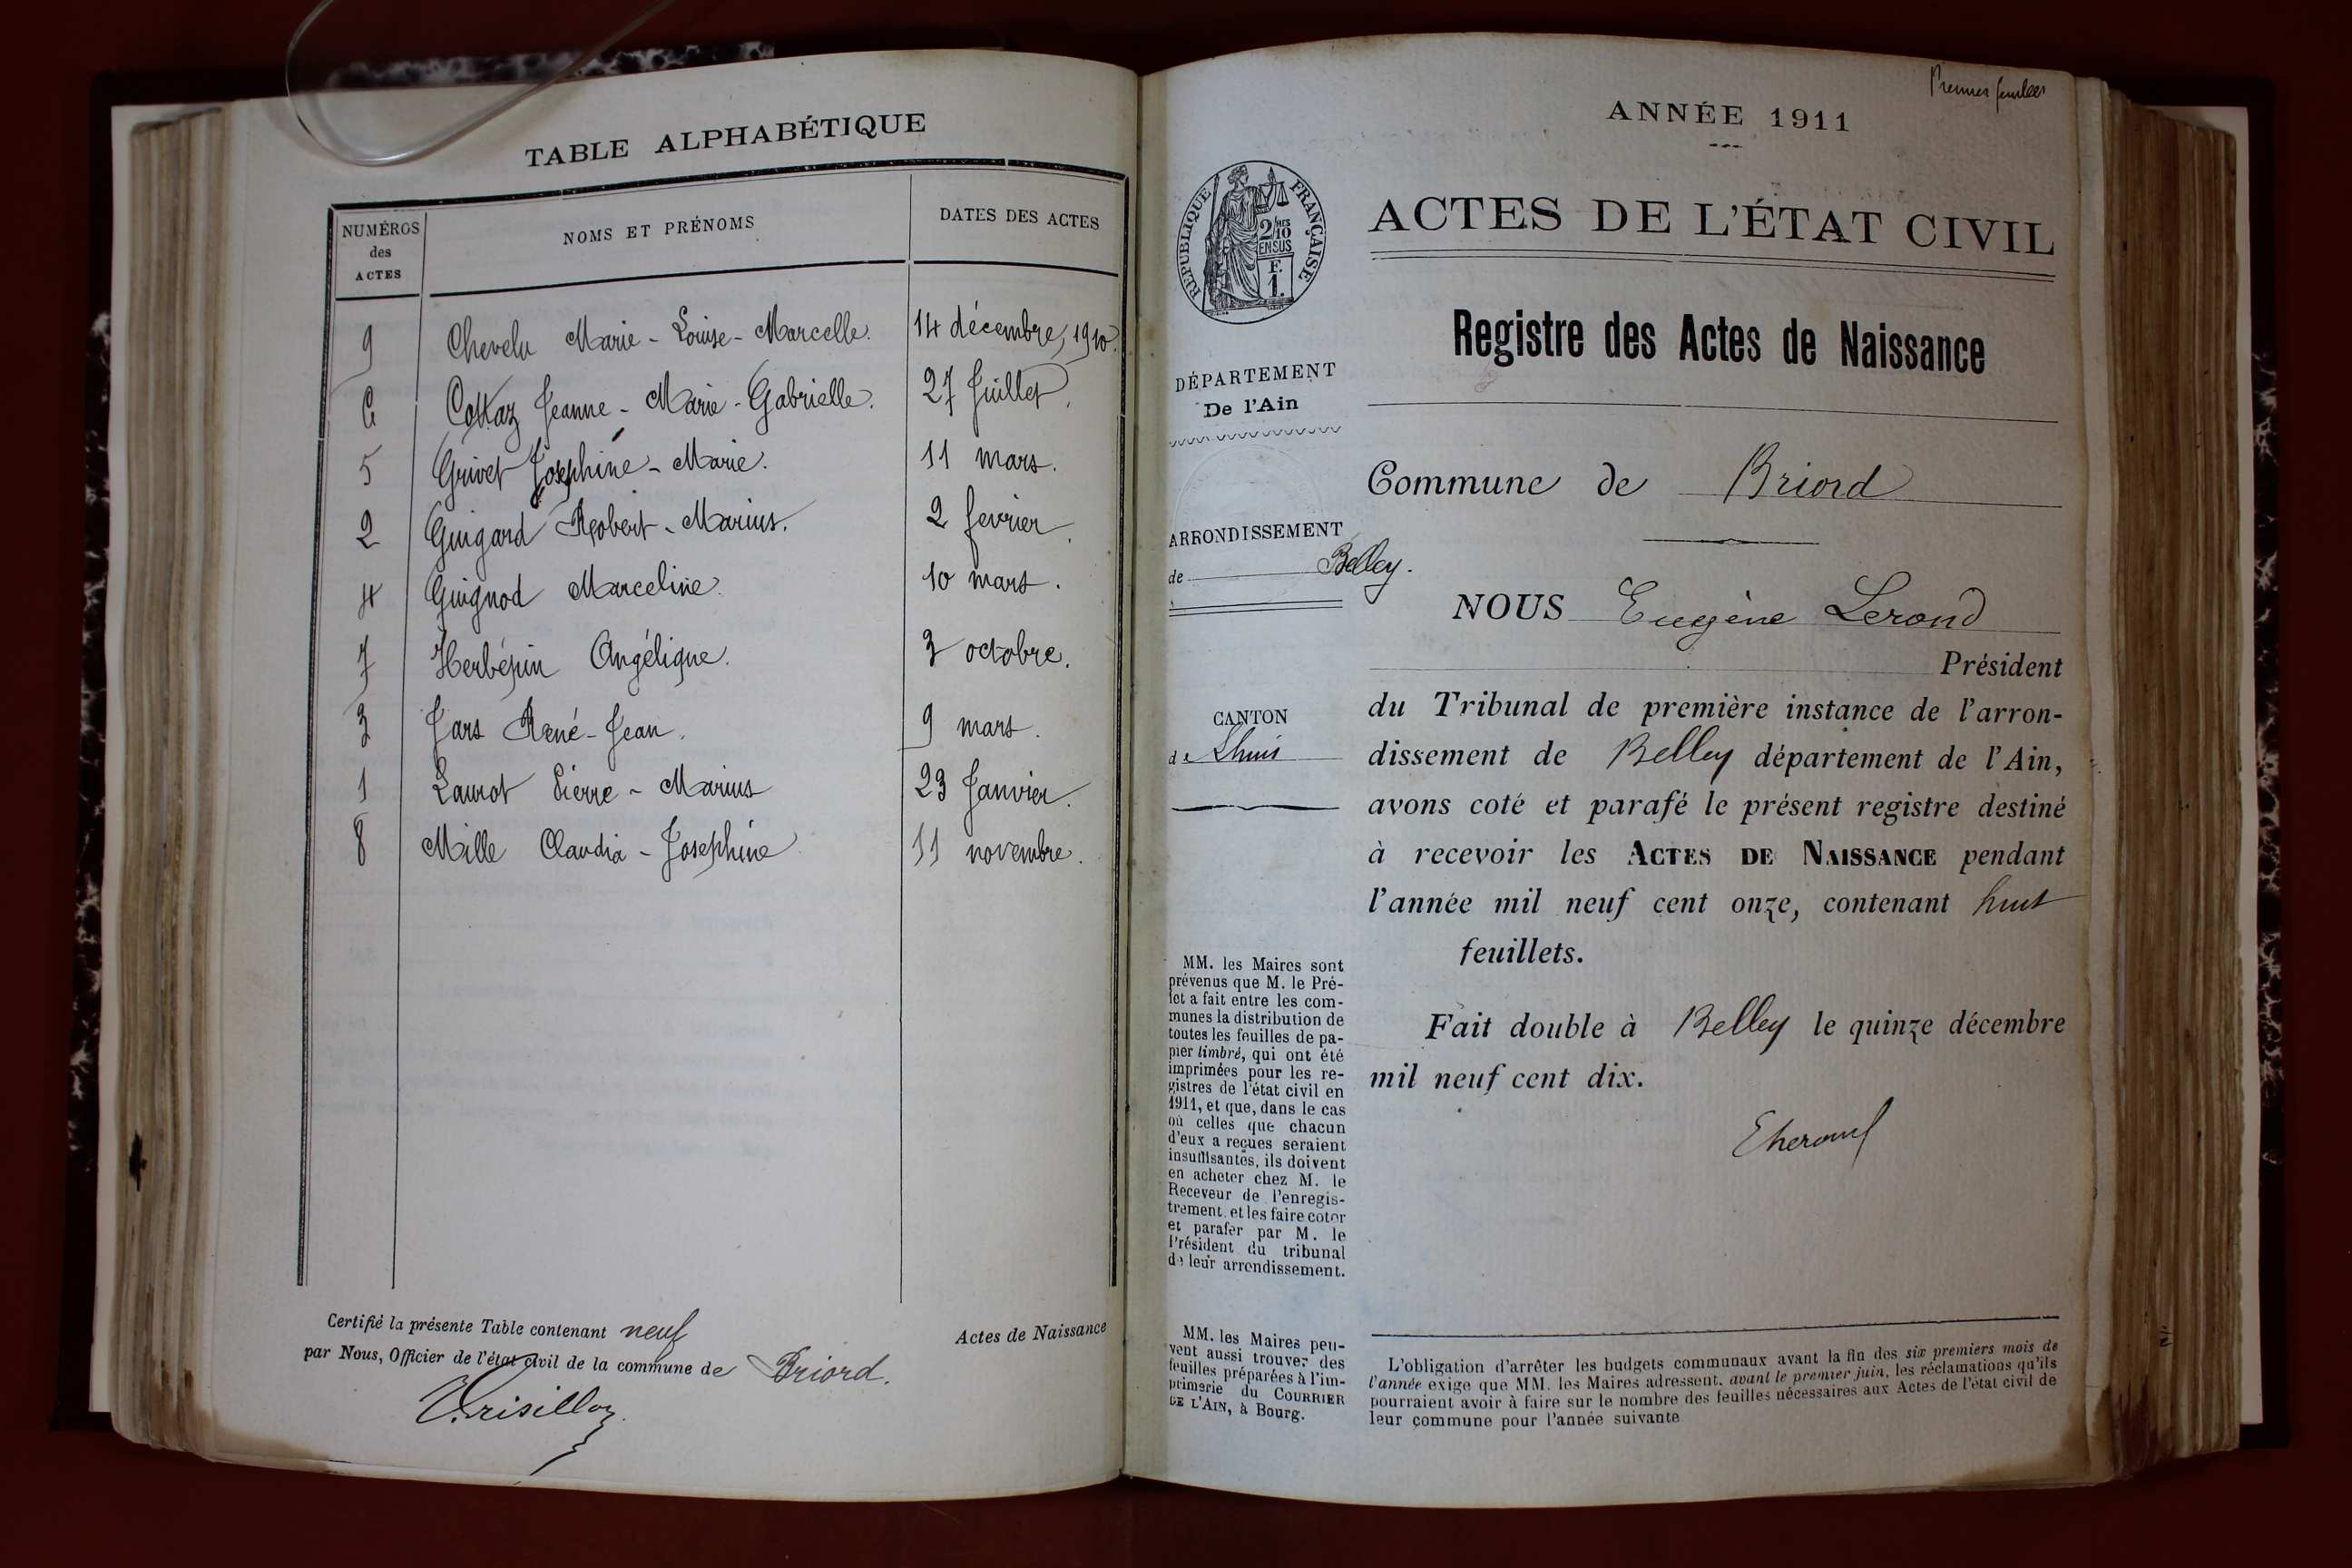 TABLE ALPHABÉTIQUE
NUMÉROS
des
ACTES
NOMS ET PRÉNOMS
DATES DES ACTES
9 Chevelu Marie - Louise - Marcelle. 14 décembre, 1910.
6 Cottaz Jeanne - Marie - Gabrielle. 27 Juillet.
5 Grivet Josephine - Marie. 11 mars.
2 Guigard Robert - Marius. 2 fevrier.
4 Guignod Marceline. 10 mars.
7 Herbépin Angélique. 3 octobre.
3 Jars René - Jean. 9 mars.
1 Laurot Pierre - Marius 23 Janvier.
8 Mille Claudia - Josephine 11 novembre.
Certifié la présente Table contenant neuf Actes de Naissance
par Nous, Officier de l'état civil de la commune de Briord.
Premier feuillet
ANNÉE 1911
RÉPUBLIQUE FRANÇAISE
2/10
EN SUS
F.
1.
ACTES DE L'ÉTAT CIVIL
Registre des Actes de Naissance
DÉPARTEMENT
De l'Ain
ARRONDISSEMENT
de Belley.
CANTON
de Lhuis
MM. les Maires sont
prévenus que M. le Pré-
fet a fait entre les com-
munes la distribution de
toutes les feuilles de pa-
pier timbré, qui ont été
imprimées pour les re-
gistres de l'état civil en
1911, et que, dans le cas
où celles que chacun
d'eux a reçues seraient
insuffisantes, ils doivent
en acheter chez M. le
Receveur de l'enregis-
trement. et les faire coter
et parafer par M. le
Président du tribunal
de leur arrondissement.
MM. les Maires peu-
vent aussi trouver des
feuilles préparées à l'im-
primerie du COURRIER
DE L'AIN, à Bourg.
Commune de Briord
NOUS Eugène Lerond
Président
du Tribunal de première instance de l'arron-
dissement de Belley département de l'Ain,
avons coté et parafé le présent registre destiné
à recevoir les ACTES DE NAISSANCE pendant
l'année mil neuf cent onze, contenant huit
feuillets.
Fait double à Belley le quinze décembre
mil neuf cent dix.
L'obligation d'arrêter les budgets communaux avant la fin des six premiers mois de
l'année exige que MM. les Maires adressent, avant le premier juin, les réclamations qu'ils
pourraient avoir à faire sur le nombre des feuilles nécessaires aux Actes de l'état civil de
leur commune pour l'année suivante